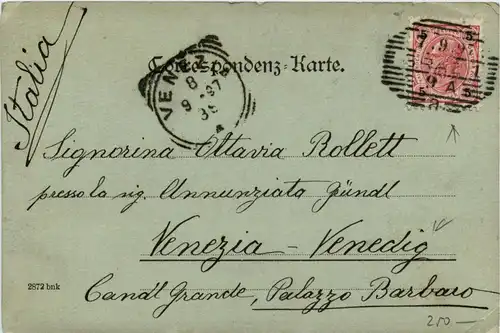 Italia
Correspondenz-Karte.
VENEZIA
8
9 - 97
3 S
5 5
9
9 A
5 5
Signorina Ottavia Rollett
presso la sig. Annunziata Gündl
Venezia - Venedig
2872 bnk
Canal Grande, Palazzo Barbaro
250 —